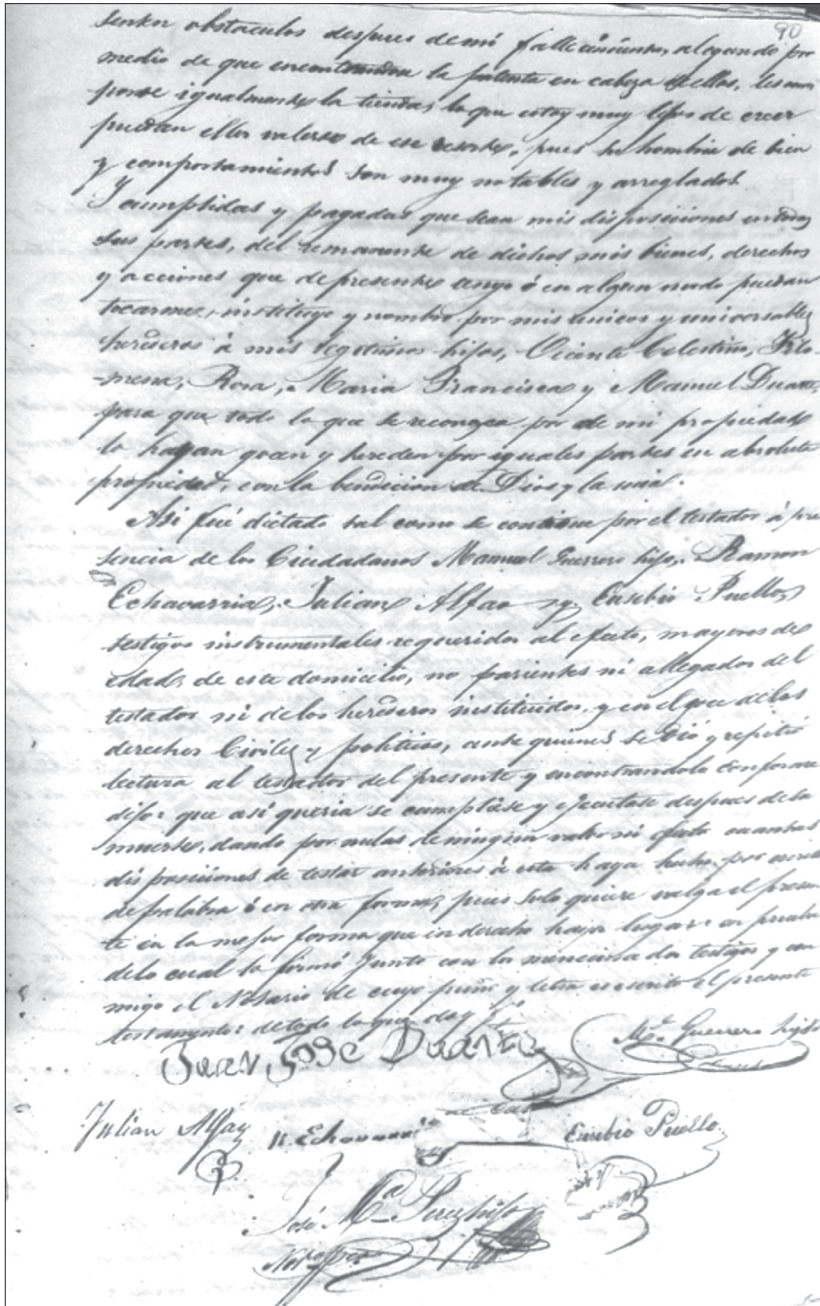 90
senten obstaculos despues de mi fallecimiento, alegando por
medio de que encontrandose la patente en cabeza de ellos, les
igualmente la tienda; lo que estoy muy lejos de creer
puedan ellos valerse de ese resorte, pues su hombria de bien
y comportamientos son muy notables y arreglados.
I cumplidas y pagadas que sean mis disposiciones en todas
sus partes, del remanente de dichos mis bienes, derechos
y acciones que de presente tengo ó en algun modo puedan
tocarme, instituyo y nombro por mis unicos y universales
herederos á mis legitimos hijos, Vicente Celestino, Filo-
-mena, Rosa, Maria Francisca y Manuel Duarte,
para que todo lo que se reconozca por de mi propiedad
lo hayan gocen y hereden por iguales partes en absoluta
propiedad, con la bendicion de Dios y la mia.
Asi fué dictado tal como se contiene por el testador á pre
sencia de los Ciudadanos Manuel Guerrero hijo, Ramon
Echavarria, Julian Alfao y Eusebio Puello,
testigos instrumentales requeridos al efecto, mayores de
edad, de este domicilio, no parientes ni allegados del
testador ni de los herederos instituidos, y en el goce de los
derechos Civiles y politicos, ante quienes se dió y repitió
lectura al testador del presente y encontrandolo conforme
dijo: que asi queria se cumpliese y ejecutase despues de su
muerte, dando por nulas de ningun valor ni efecto cuantas
disposiciones de testar anteriores á esta haya hecho por escrito
de palabra ó en otra forma, pues solo quiere valga el presen
te en la mejor forma que en derecho haya lugar: en prueba
de lo cual lo firmó junto con los mencionados testigos y con
migo el Notario de cuyo puño y letra es escrito el presente
testamento: de todo lo que doy fé.
Juan Jose Duarte
Ml. Guerrero hijo
Julian Alfao
R. Echavarria
Eusebio Puello
José Ma. Perez hijo
Noto. pco.